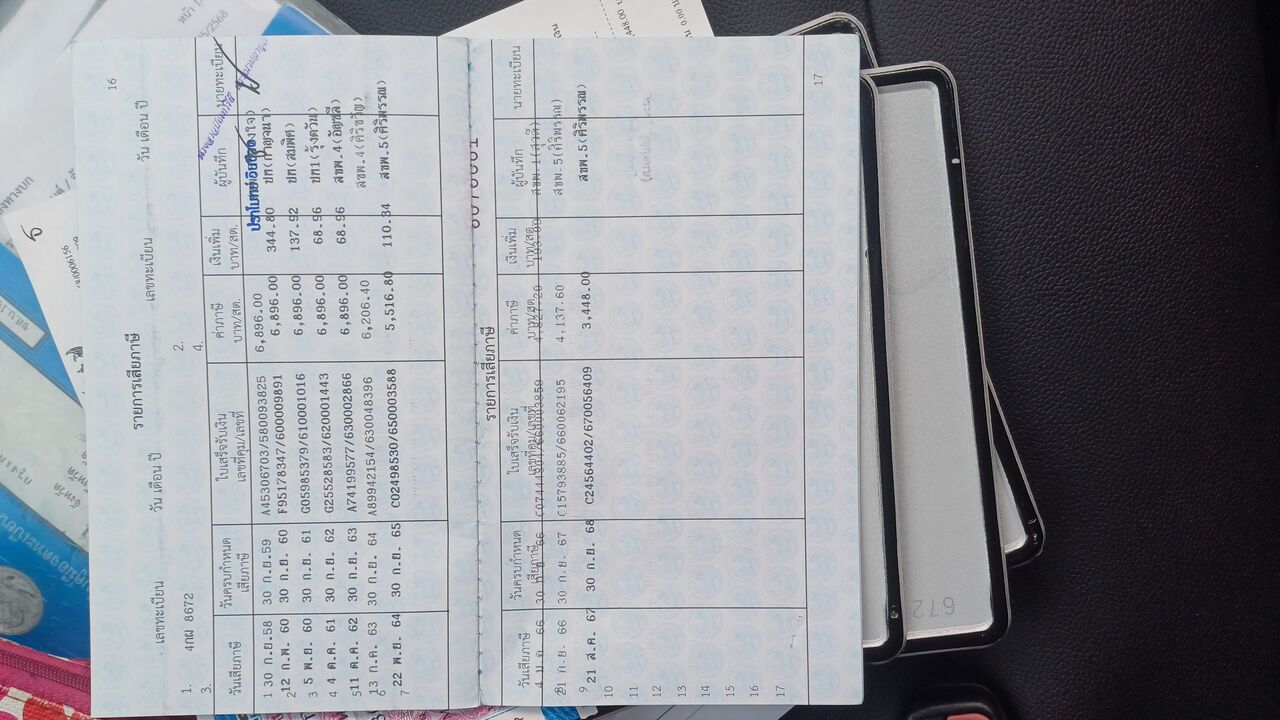 16
รายการเสียภาษี
เลขทะเบียน วัน เดือน ปี เลขทะเบียน วัน เดือน ปี
1. 4กผ 8672 2.
3. 4.
วันเสียภาษี วันครบกำหนดเสียภาษี ใบเสร็จรับเงิน เลขที่คุม/เลขที่ ค่าภาษี บาท/สต. เงินเพิ่ม บาท/สต. ผู้บันทึก นายทะเบียน
1 30 ก.ย.58 30 ก.ย.59 A45306703/580093825 6,896.00
2 12 ก.พ. 60 30 ก.ย. 60 F95178347/600009891 6,896.00 344.80 ปท(กาญจนา)
3 5 พ.ย. 60 30 ก.ย. 61 G05985379/610001016 6,896.00 137.92 ปท(สมพิศ)
4 4 ต.ค. 61 30 ก.ย. 62 G25528583/620001443 6,896.00 68.96 ปท1(รุ้งตวัน)
5 11 ต.ค. 62 30 ก.ย. 63 A74199577/630002866 6,896.00 68.96 สขพ.4(อัญชลี)
6 13 ก.ค. 63 30 ก.ย. 64 A89942154/630048396 6,206.40 สขพ.4(ศิริขวัญ)
7 22 พ.ย. 64 30 ก.ย. 65 C02498530/650003588 5,516.80 110.34 สขพ.5(ศิริพรรณ)
รายการเสียภาษี
วันเสียภาษี วันครบกำหนดเสียภาษี ใบเสร็จรับเงิน เลขที่คุม/เลขที่ ค่าภาษี บาท/สต. เงินเพิ่ม บาท/สต. ผู้บันทึก นายทะเบียน
66 30 66 สขพ.1
21 ก.ย. 66 30 ก.ย. 67 C15793885/660062195 4,137.60 สขพ.5(ศิริพรรณ)
9 21 ส.ค. 67 30 ก.ย. 68 C24564402/670056409 3,448.00 สขพ.5(ศิริพรรณ)
10
11
12
13
14
15
16
17
17
672